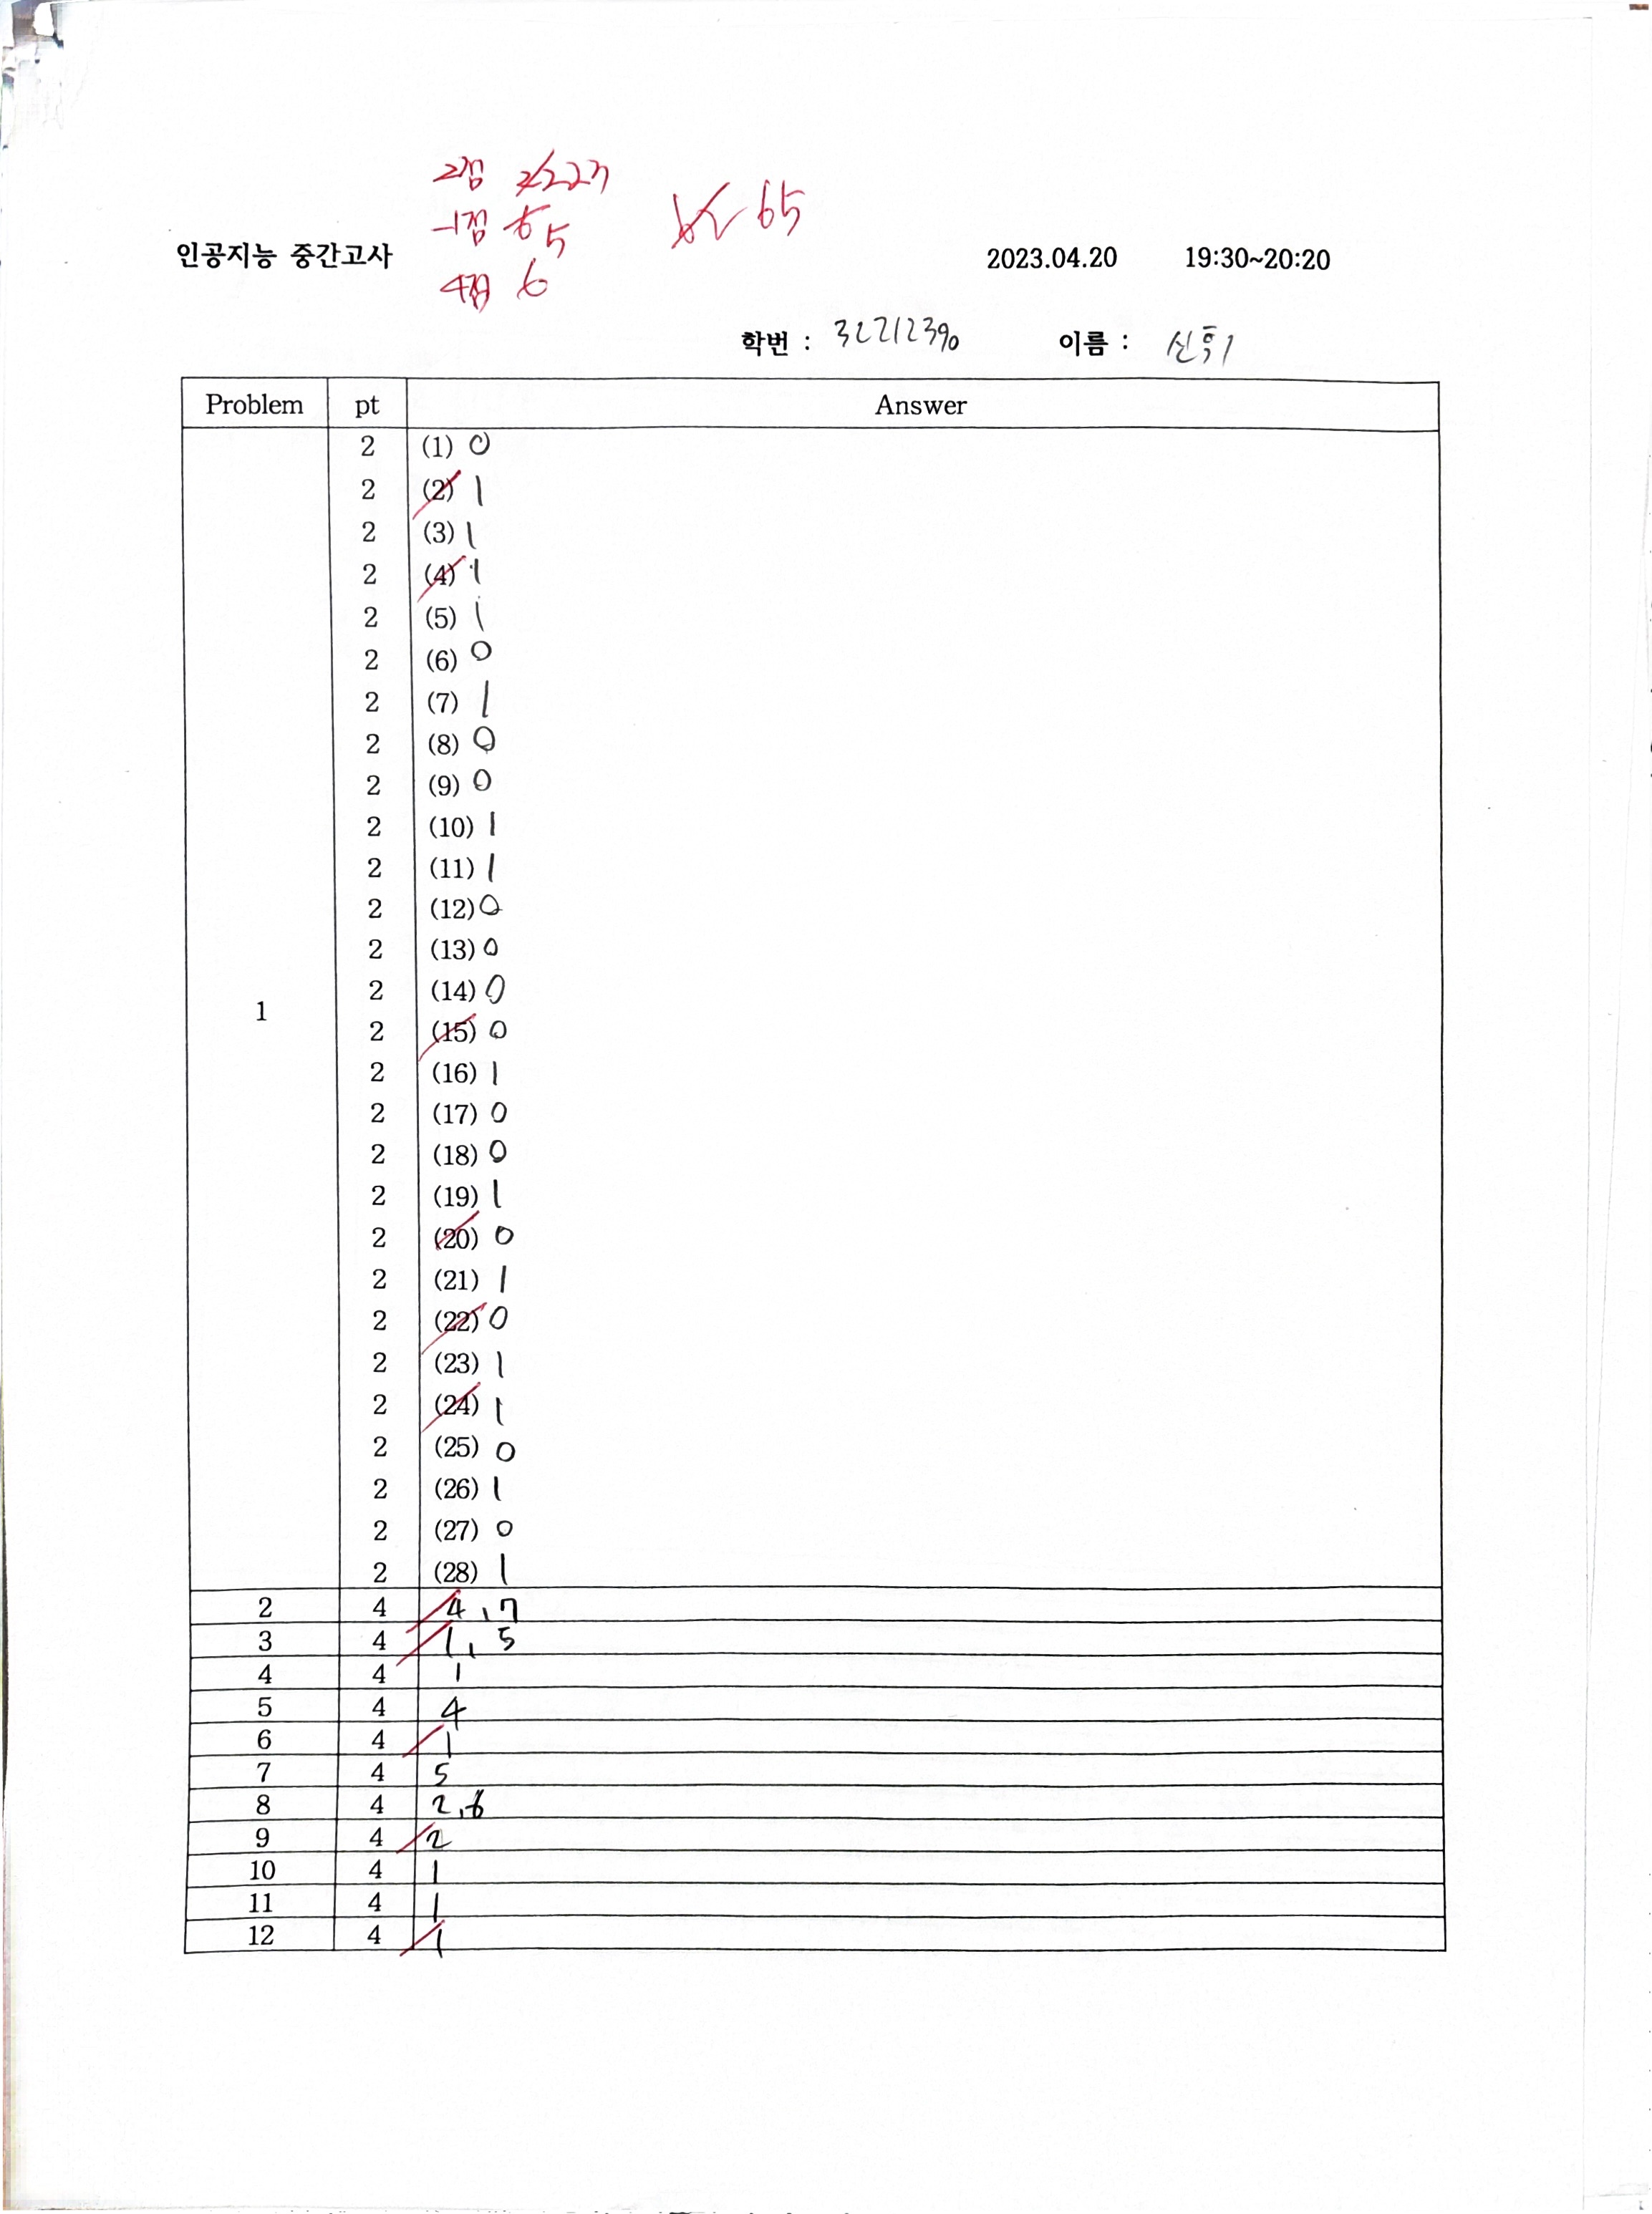 2점 22개
-1점 5
4점 6
65
인공지능 중간고사 2023.04.20 19:30~20:20
학번 : 32212390 이름 :
Problem pt Answer
2 (1) 0
2 (2) 1
2 (3) 1
2 (4) 1
2 (5) 1
2 (6) 0
2 (7) 1
2 (8) 0
2 (9) 0
2 (10) 1
2 (11) 1
2 (12) 0
2 (13) 0
2 (14) 0
1
2 (15) 0
2 (16) 1
2 (17) 0
2 (18) 0
2 (19) 1
2 (20) 0
2 (21) 1
2 (22) 0
2 (23) 1
2 (24) 1
2 (25) 0
2 (26) 1
2 (27) 0
2 (28) 1
2 4 4,7
3 4 1,5
4 4 1
5 4 4
6 4 1
7 4 5
8 4 2,6
9 4 2
10 4 1
11 4 1
12 4 1